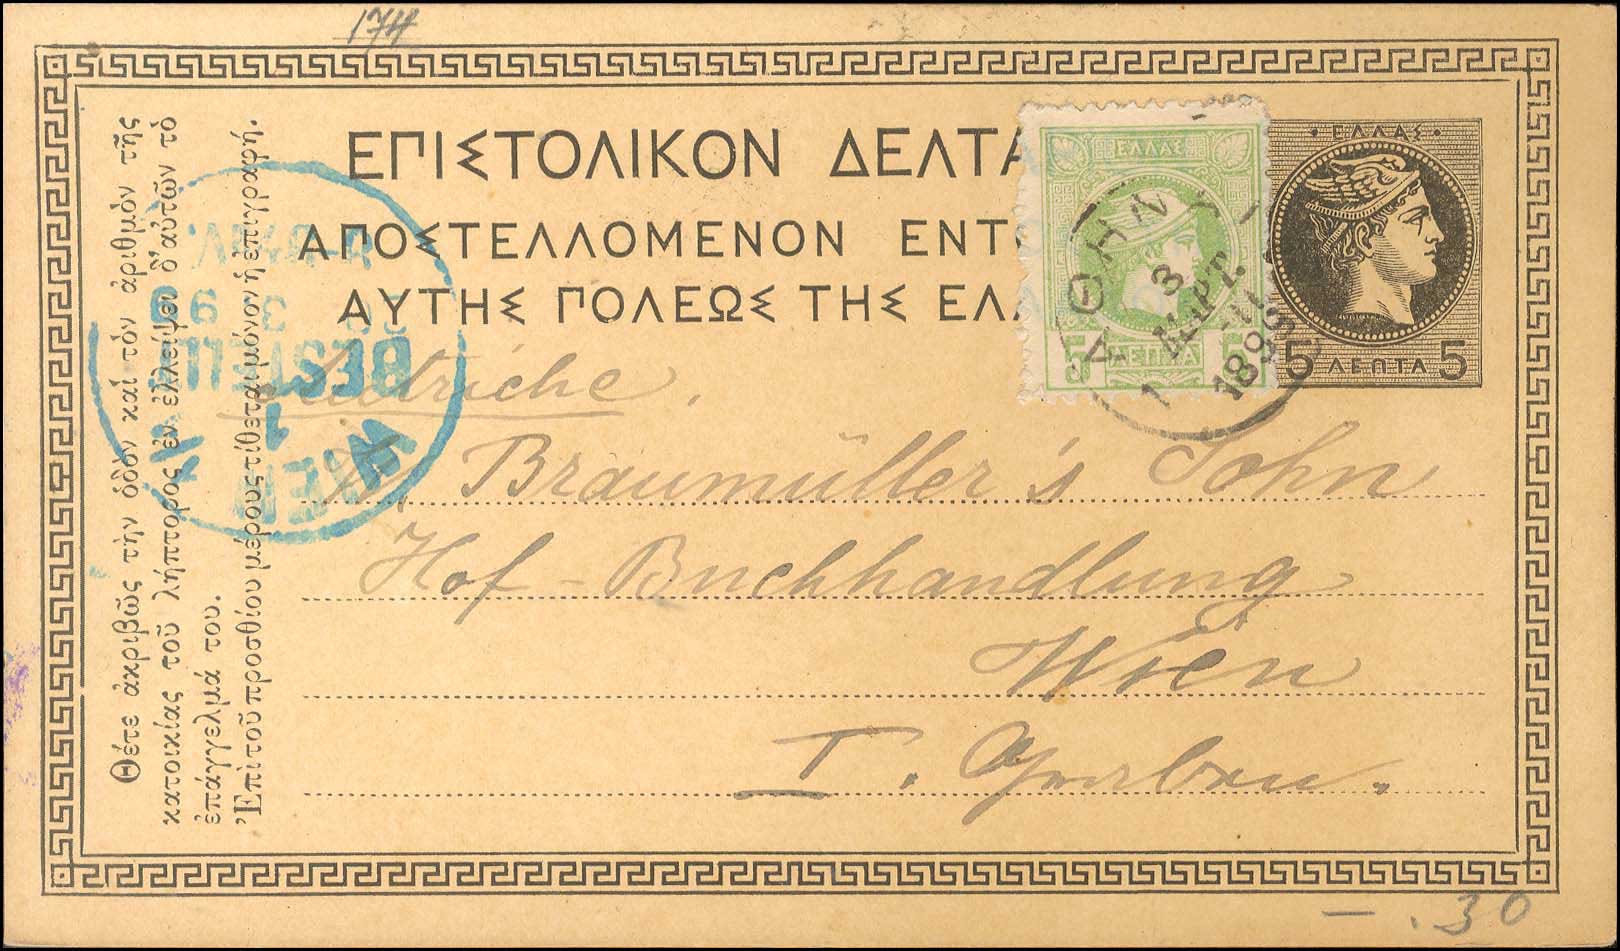 174
ΕΠΙΣΤΟΛΙΚΟΝ ΔΕΛΤΑ
ΑΠΟΣΤΕΛΛΟΜΕΝΟΝ ΕΝΤ
ΑΥΤΗΣ ΠΟΛΕΩΣ ΤΗΣ ΕΛ
ΕΛΛΑΣ
5 ΛΕΠΤΑ 5
ΕΛΛΑΣ
5 ΛΕΠΤΑ 5
ΑΘΗΝ
3
ΜΑΡΤ.
189
Θέτε ἀκριβῶς τὴν ὁδὸν καὶ τὸν ἀριθμὸν τῆς
κατοικίας τοῦ λήπτορος ἐν ἐλλείψει δ'αὐτῶν τὸ
ἐπάγγελμά του.
Ἐπὶ τοῦ προσθίου μέρους τίθεται μόνον ἡ ἐπιγραφή.
WIEN
1
BESTELLT
Autriche.
Braumüller's Sohn
Hof-Buchhandlung
Wien
I. Graben.
— .30